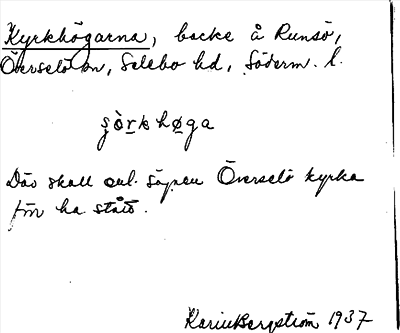 Kyrkhögarna, backe å Runsö,
Överselö sn, Selebo hd, Söderm. l.
şòrkhøga
Där skall enl. sägnen Överselö kyrka
förr ha stått.
Karin Bergström 1937